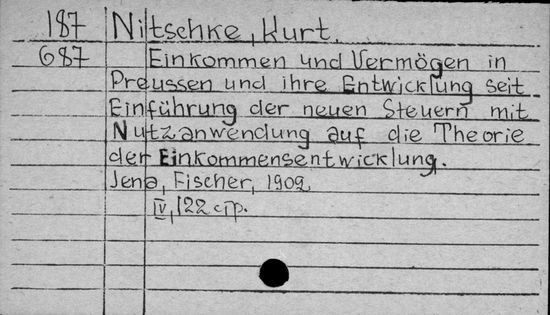 187 Nitschke, Kurt.
687 Einkommen und Vermögen in
Preussen und ihre Entwicklung seit
Einführung der neuen Steuern mit
Nutzanwendung auf die Theorie
der Einkommensentwicklung.
Jena, Fischer, 1909.
IV, 122 стр.